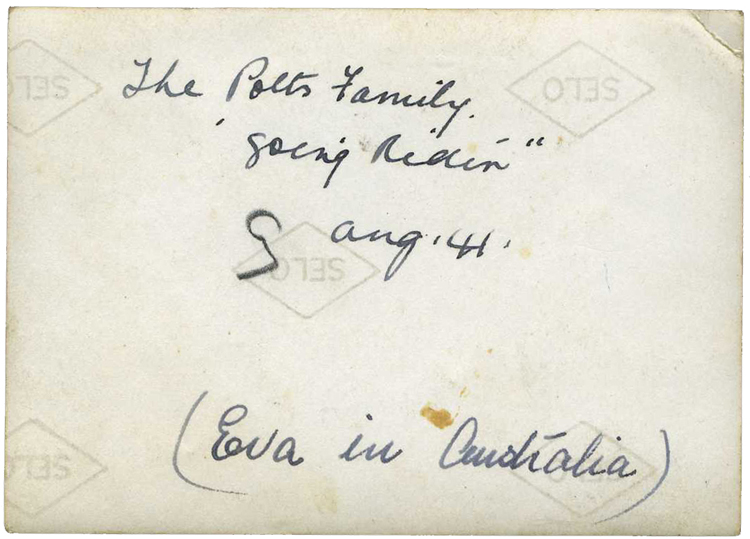 SELO
SELO
The Potts Family.
'going Ridin"
Aug. 41.
SELO
(Eva in Australia)
SELO
SELO